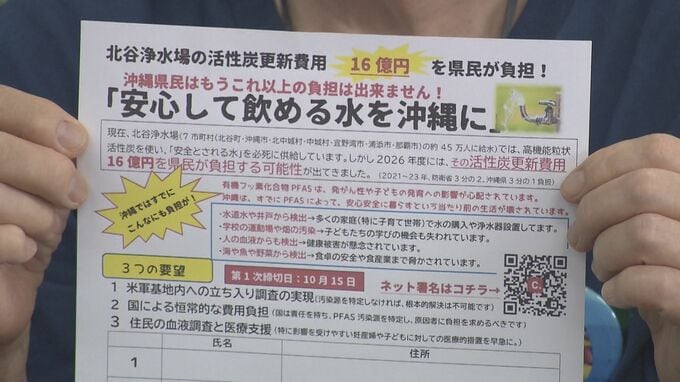 北谷浄水場の活性炭更新費用 16億円 を県民が負担！
沖縄県民はもうこれ以上の負担は出来ません！
「安心して飲める水を沖縄に」
現在、北谷浄水場(7市町村(北谷町・沖縄市・北中城村・中城村・宜野湾市・浦添市・那覇市)の約45万人に給水)では、高機能粒状
活性炭を使い、「安全とされる水」を必死に供給しています。しかし2026年度には、その活性炭更新費用
16億円を県民が負担する可能性が出てきました。(2021～23年、防衛省3分の2、沖縄県3分の1負担)
沖縄ではすでに
こんなにも負担が！
有機フッ素化合物PFASは、発がん性や子どもの発育への影響が心配されています。
沖縄は、すでにPFASによって、安心安全に暮らすという当たり前の生活が壊されています。
・水道水や井戸から検出→多くの家庭(特に子育て世帯)で水の購入や浄水器設置してます。
・学校の運動場や畑の汚染→子どもたちの学びの機会も失われています。
・人の血液からも検出→健康被害が懸念されています。
・海や魚や野菜から検出→食卓の安全や食産業まで脅かされています。
3つの要望
第1次締切日：10月15日
ネット署名はコチラ→
1 米軍基地内への立ち入り調査の実現(汚染源を特定しなければ、根本的解決は不可能です)
2 国による恒常的な費用負担(国は責任を持ち、PFAS汚染源を特定し、原因者に負担を求めるべきです)
3 住民の血液調査と医療支援(特に影響を受けやすい妊産婦や子どもに対しての医療的措置を早急に。)
氏名 住所
1